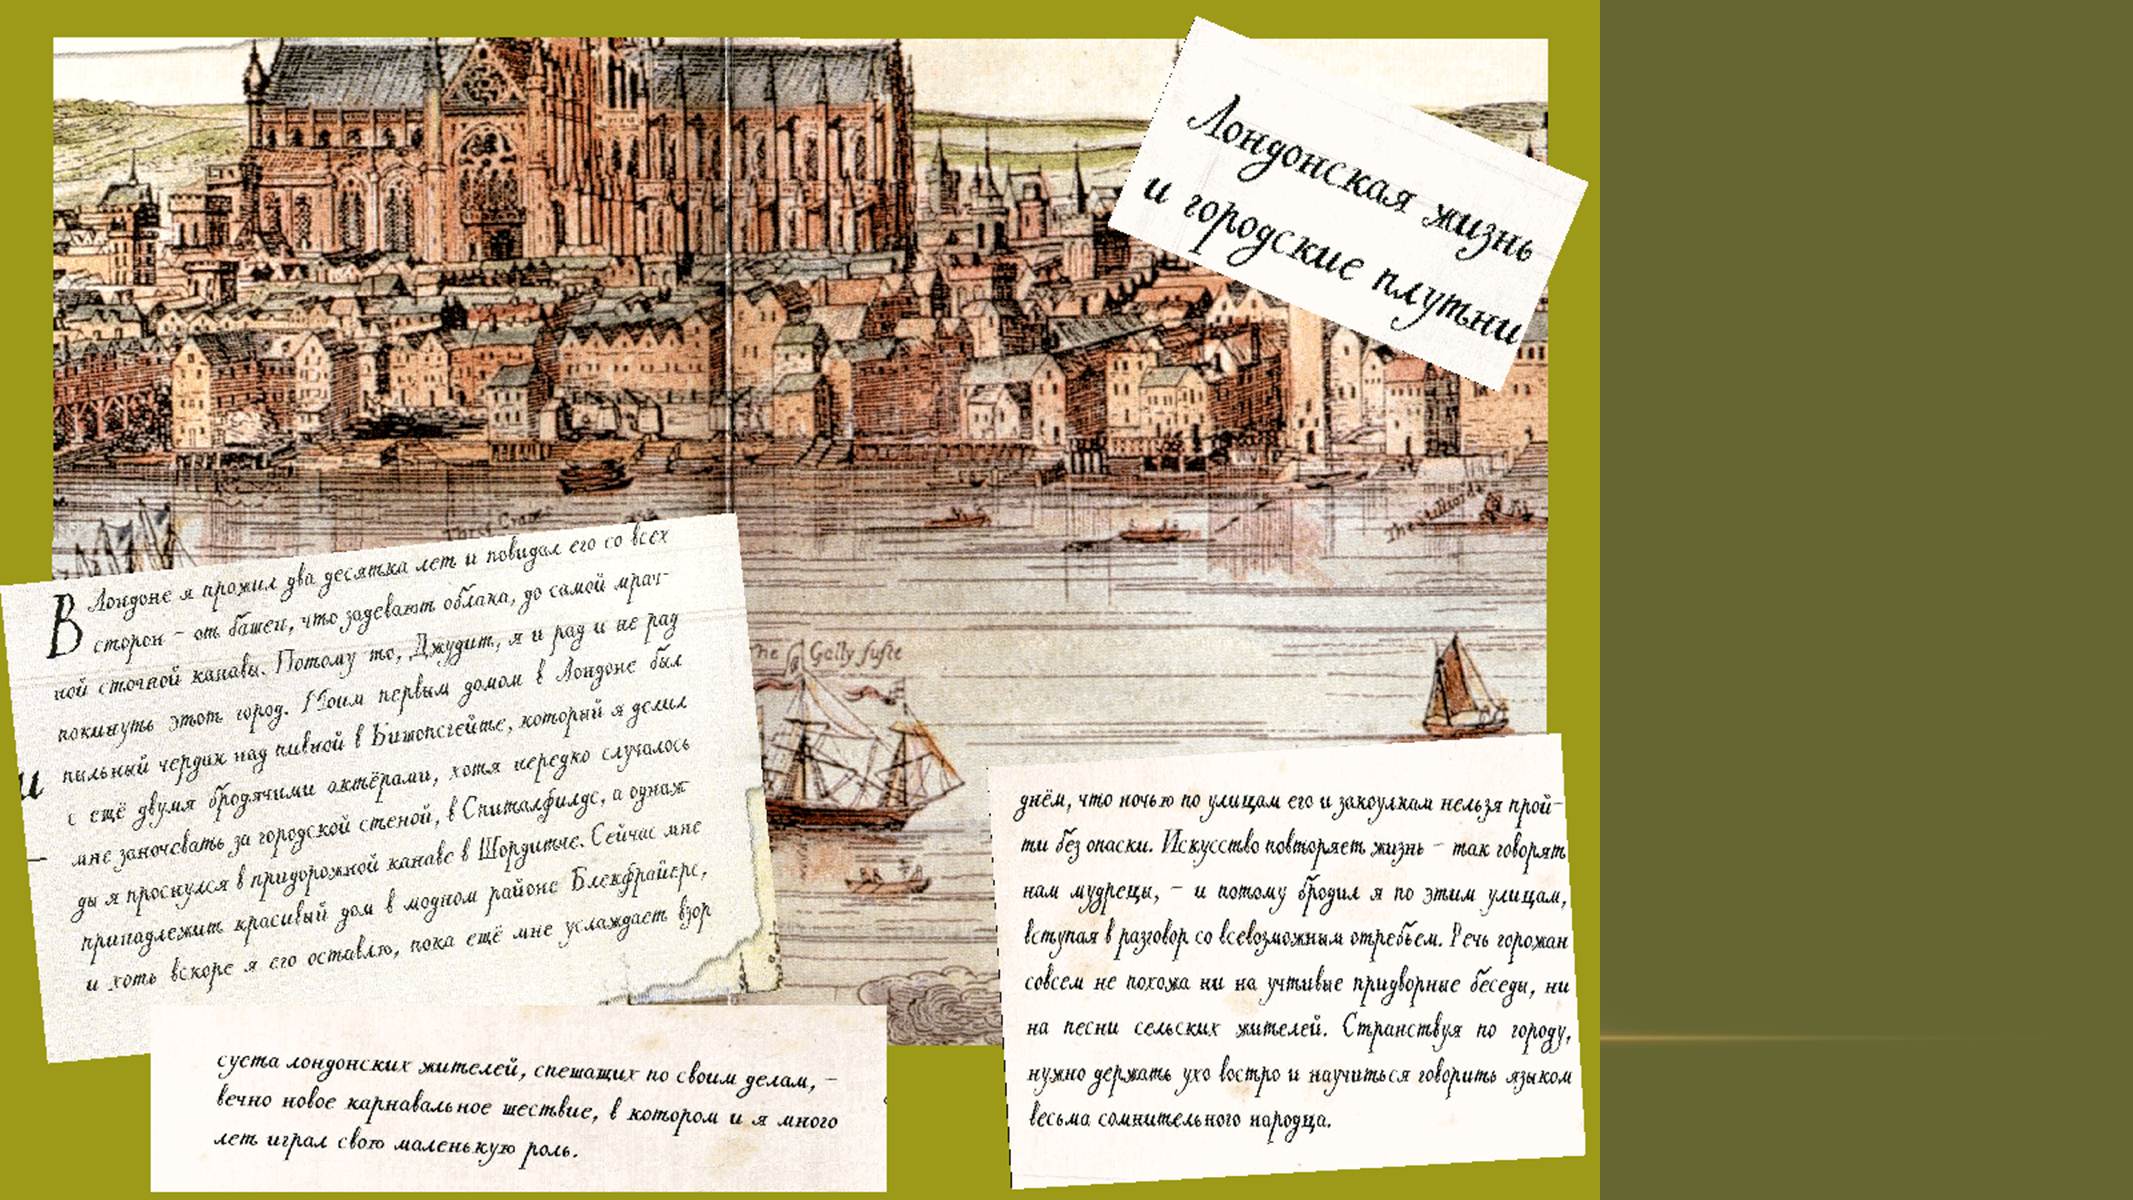 Лондонская жизнь
и городские плутни
Three Cranes
The Stilliarde
В Лондоне я прожил два десятка лет и повидал его со всех
сторон – от башен, что задевают облака, до самой мрач-
ной сточной канавы. Потому то, Джудит, я и рад и не рад
покинуть этот город. Моим первым домом в Лондоне был
пыльный чердак над пивной в Бишопсгейте, который я делил
с ещё двумя бродячими актёрами, хотя нередко случалось
мне заночевать за городской стеной, в Спиталфилдс, а однаж
ды я проснулся в придорожной канаве в Шордитче. Сейчас мне
принадлежит красивый дом в модном районе Блекфрайерс,
и хоть вскоре я его оставлю, пока ещё мне услаждает взор
и
–
The Gally fuste
суета лондонских жителей, спешащих по своим делам, –
вечно новое карнавальное шествие, в котором и я много
лет играл свою маленькую роль.
днём, что ночью по улицам его и закоулкам нельзя прой-
ти без опаски. Искусство повторяет жизнь – так говорят
нам мудрецы, – и потому бродил я по этим улицам,
вступая в разговор со всевозможным отребьем. Речь горожан
совсем не похожа ни на учтивые придворные беседы, ни
на песни сельских жителей. Странствуя по городу,
нужно держать ухо востро и научиться говорить языком
весьма сомнительного народца.